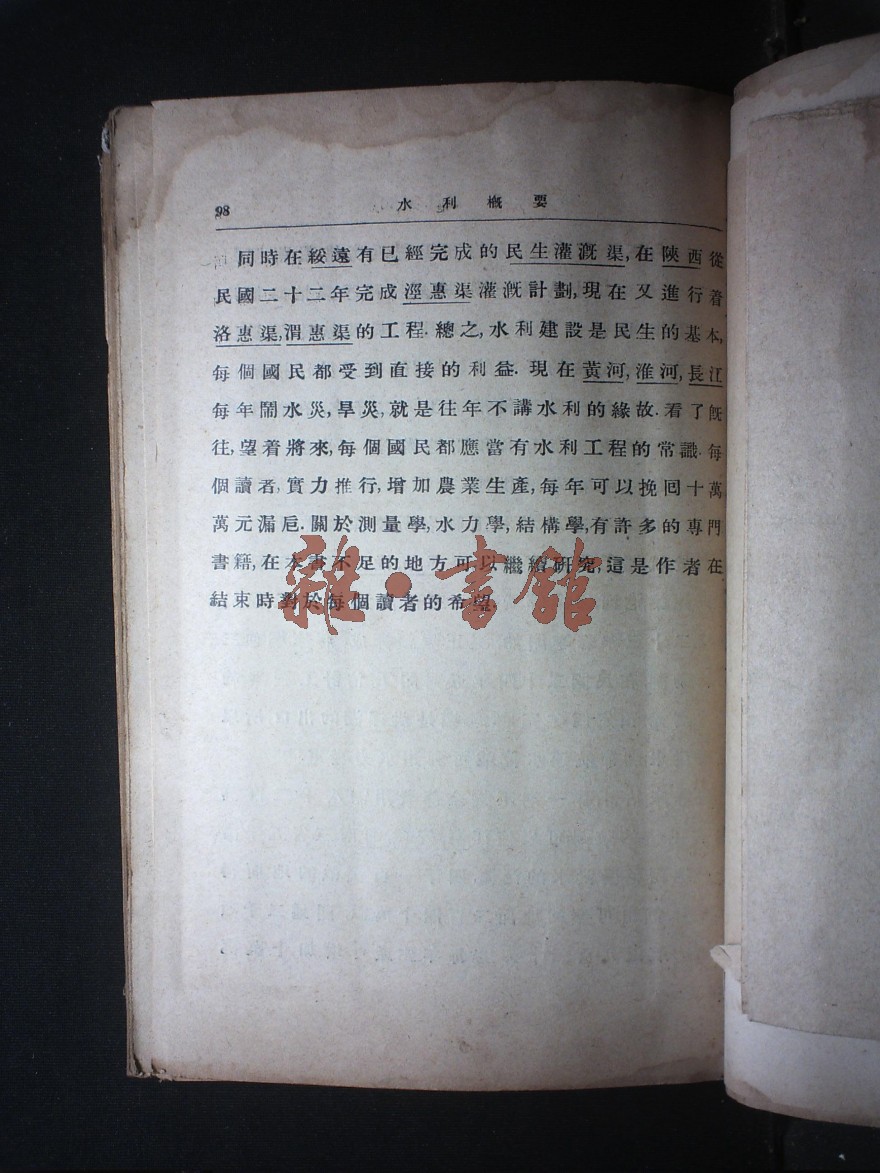 98
水利概要
同時在綏遠有已經完成的民生灌漑渠,在陝西從
民國二十二年完成涇惠渠灌漑計劃,現在又進行着
洛惠渠,渭惠渠的工程.總之,水利建設是民生的基本,
每個國民都受到直接的利益.現在黃河,淮河,長江
每年鬧水災,旱災,就是往年不講水利的緣故.看了旣
往,望着將來,每個國民都應當有水利工程的常識.每
個讀者,實力推行,增加農業生產,每年可以挽囘十萬
萬元漏巵.關於測量學,水力學,結構學,有許多的專門
書籍,在本書不足的地方可以繼續硏究,這是作者在
結束時對於每個讀者的希望.
雜·書館